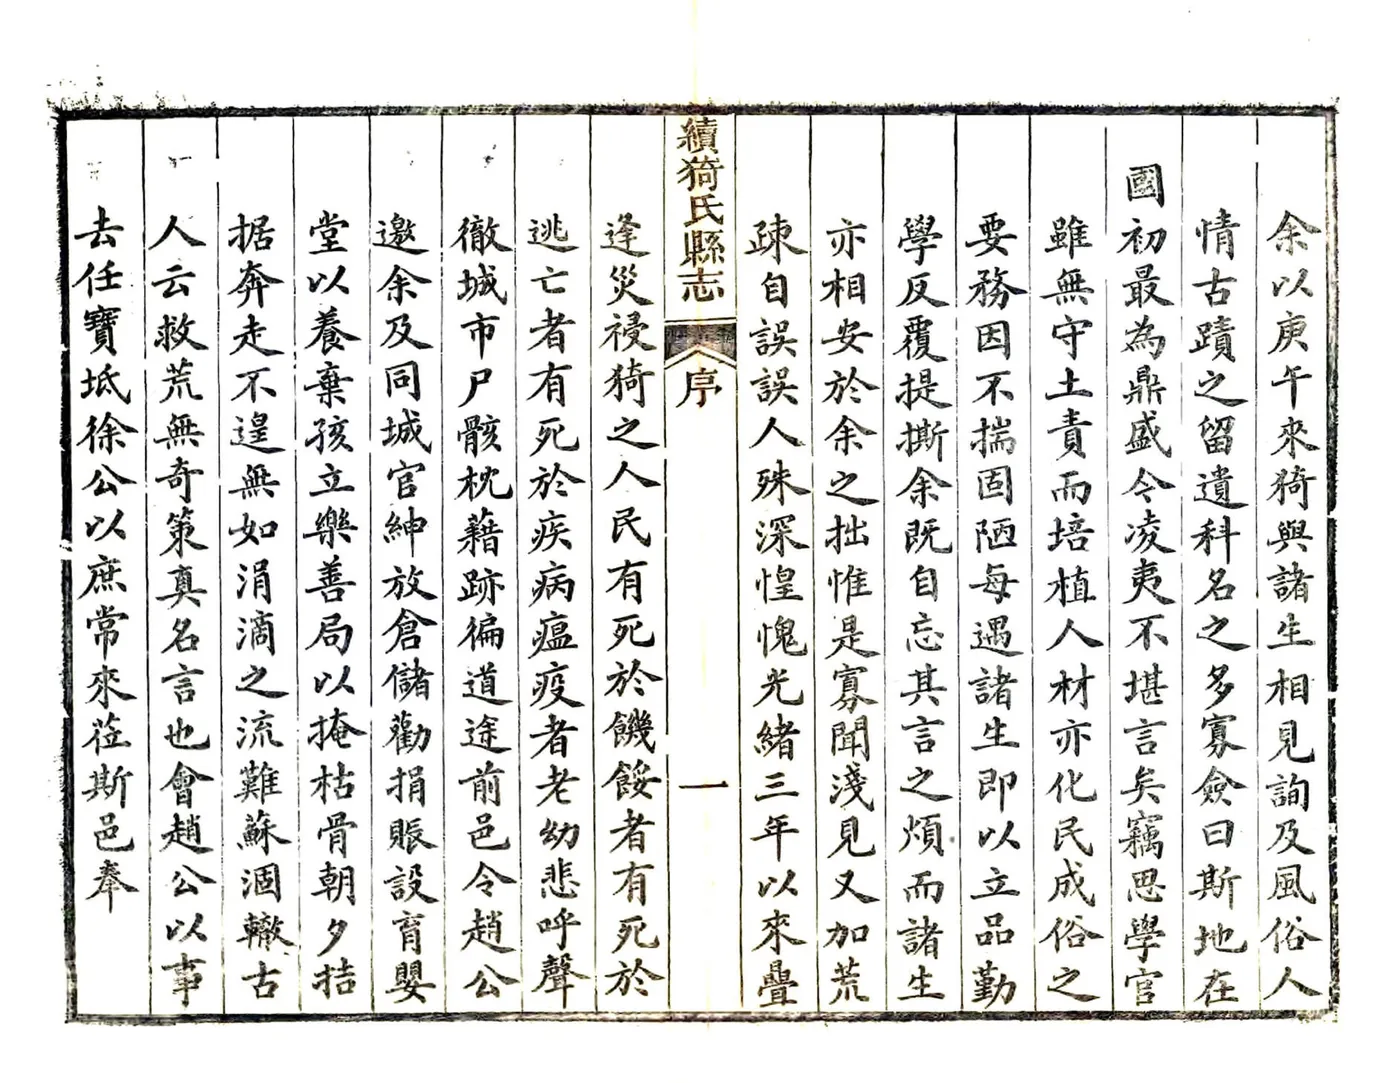 余以庚午來猗與諸生相見詢及風俗人
情古蹟之留遺科名之多寡僉曰斯地在
國初最為鼎盛今凌夷不堪言矣竊思學官
雖無守土責而培植人材亦化民成俗之
要務因不揣固陋每遇諸生即以立品勤
學反覆提撕余既自忘其言之煩而諸生
亦相安於余之拙惟是寡聞淺見又加荒
疎自誤誤人殊深惶愧光緒三年以來疊
續猗氏縣志
序
一
逢災祲猗之人民有死於饑餒者有死於
逃亡者有死於疾病瘟疫者老幼悲呼聲
徹城市尸骸枕藉跡徧道途前邑令趙公
邀余及同城官紳放倉儲勸捐賑設育嬰
堂以養棄孩立樂善局以掩枯骨朝夕拮
据奔走不遑無如涓滴之流難蘇涸轍古
人云救荒無奇策真名言也會趙公以事
去任寶坻徐公以庶常來蒞斯邑奉